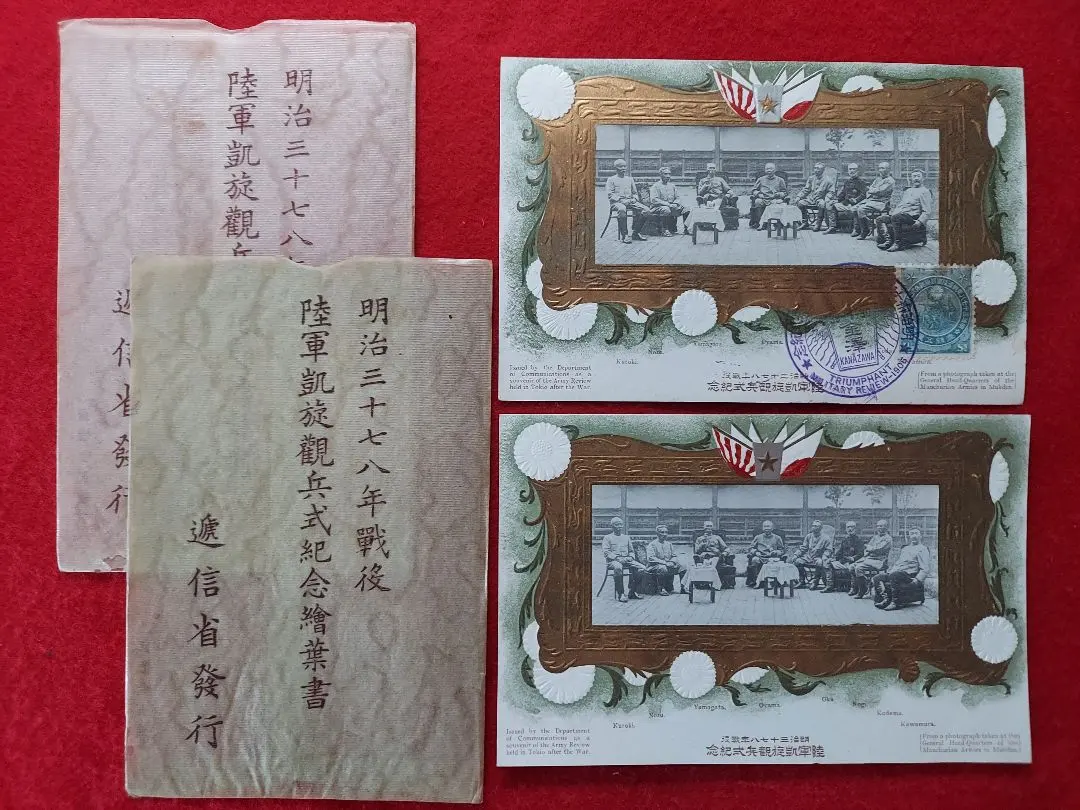 明治三十七八
陸軍凱旋觀兵
遞信省發行
明治三十七八年戰役
陸軍凱旋觀兵式紀念繪葉書
遞信省發行
Kuroki.
Nozu.
Yamagata.
Oyama.
Issued by the Department
of Communications as a
souvenir of the Army Review
held in Tokio after the War.
明治三十七八年戰役
陸軍凱旋觀兵式紀念
KANAZAWA
TRIUMPHANT
MILITARY REVIEW·1906
(From a photograph taken at the
General Head-Quarters of the
Manchurian Armies in Mukden.)
Kuroki.
Nozu.
Yamagata.
Oyama.
Oku.
Nogi.
Kodama.
Kawamura.
Issued by the Department
of Communications as a
souvenir of the Army Review
held in Tokio after the War.
明治三十七八年戰役
陸軍凱旋觀兵式紀念
(From a photograph taken at the
General Head-Quarters of the
Manchurian Armies in Mukden.)